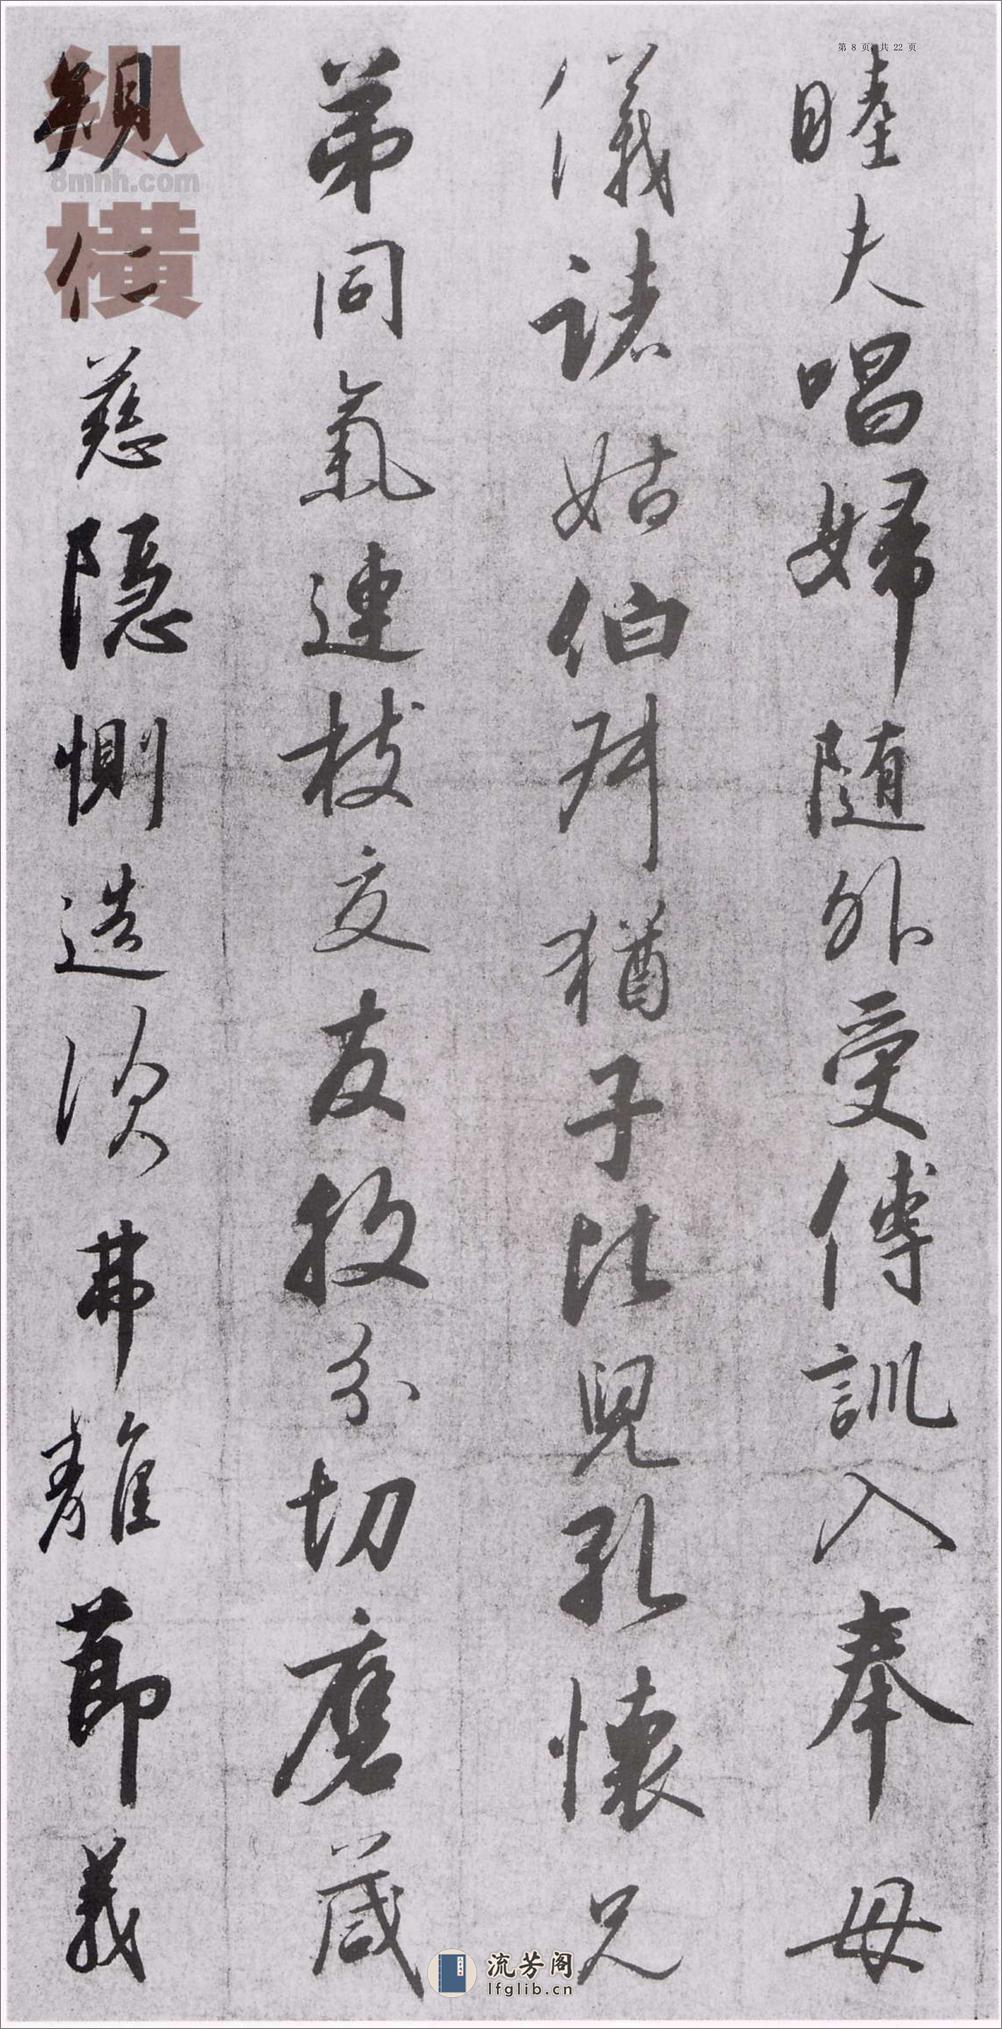 第 8 页 共 22 页
睦夫唱婦随外受傅訓入奉母
儀諸姑伯叔猶子比兒孔懷兄
弟同氣連枝交友投分切磨箴
規仁慈隠惻造次弗離節義
纵横
8mhh.com
流芳阁
lfglib.cn